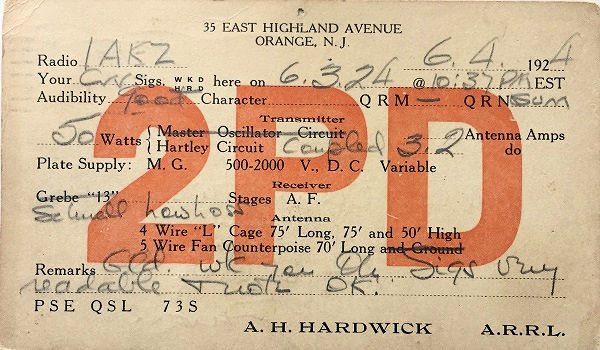 35 EAST HIGHLAND AVENUE
ORANGE, N. J.
6. 4. 1924
Radio 1AKZ
Your Sigs. WKD HRD here on 6.3.24 @ 10:37 PM EST
Audibility good Character QRM — QRN sum
Transmitter
50 Watts { Master Oscillator Circuit Antenna Amps
Hartley Circuit Coupled 3.2 do
Plate Supply: M. G. 500-2000 V., D. C. Variable
Receiver
Grebe "13" Stages A. F.
Schnell Low loss
Antenna
4 Wire "L" Cage 75' Long, 75' and 50' High
5 Wire Fan Counterpoise 70' Long and Ground
Remarks Gld. wk you Om Sigs very
readable note OK.
PSE QSL 73S
A. H. HARDWICK A.R.R.L.
2PD